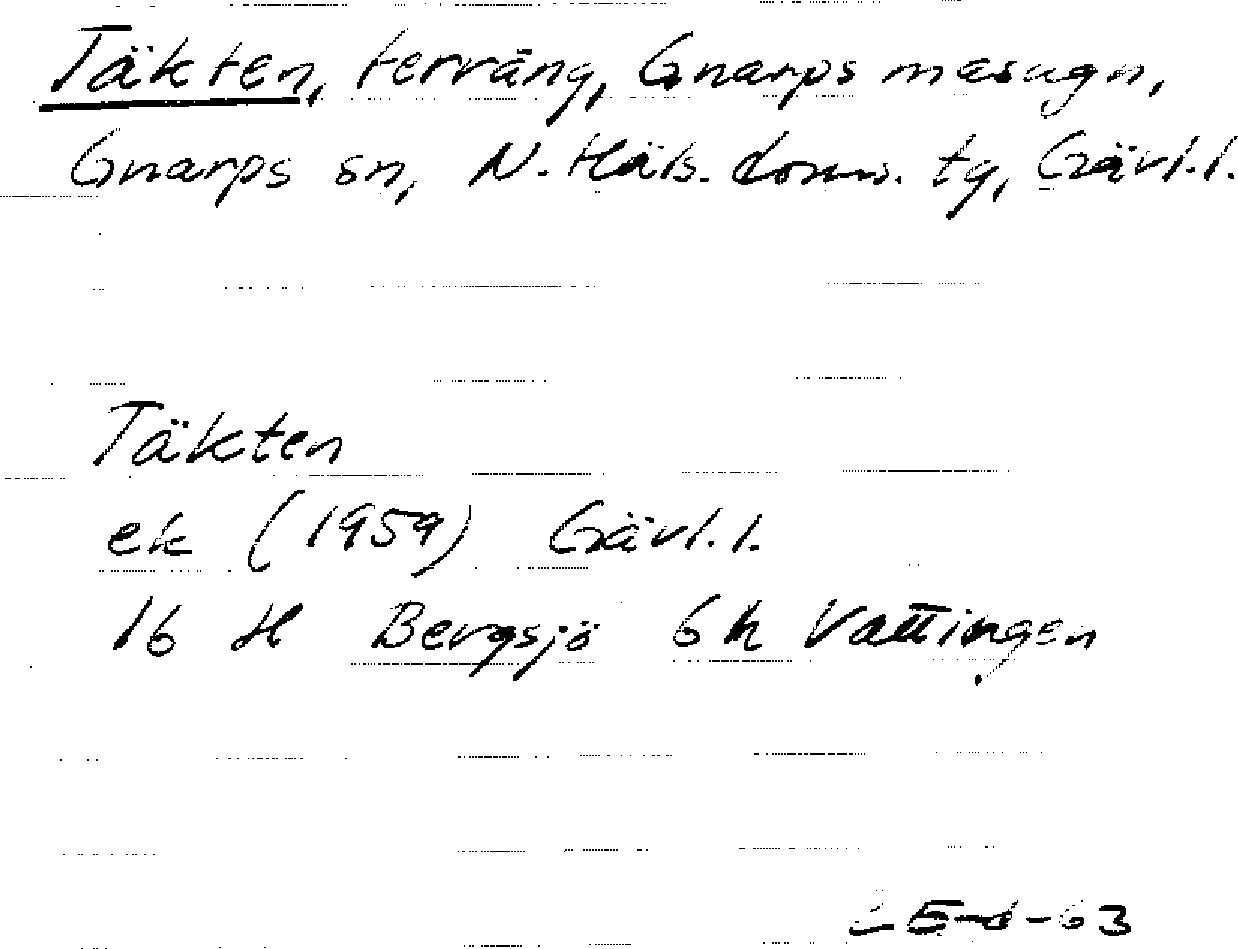 Täkten, terräng, Gnarps masugn,
Gnarps sn, N. Häls. doms. tg, Gävl.l.
Täkten
ek (1959) Gävl.l.
16 H Bergsjö 6h Vattingen